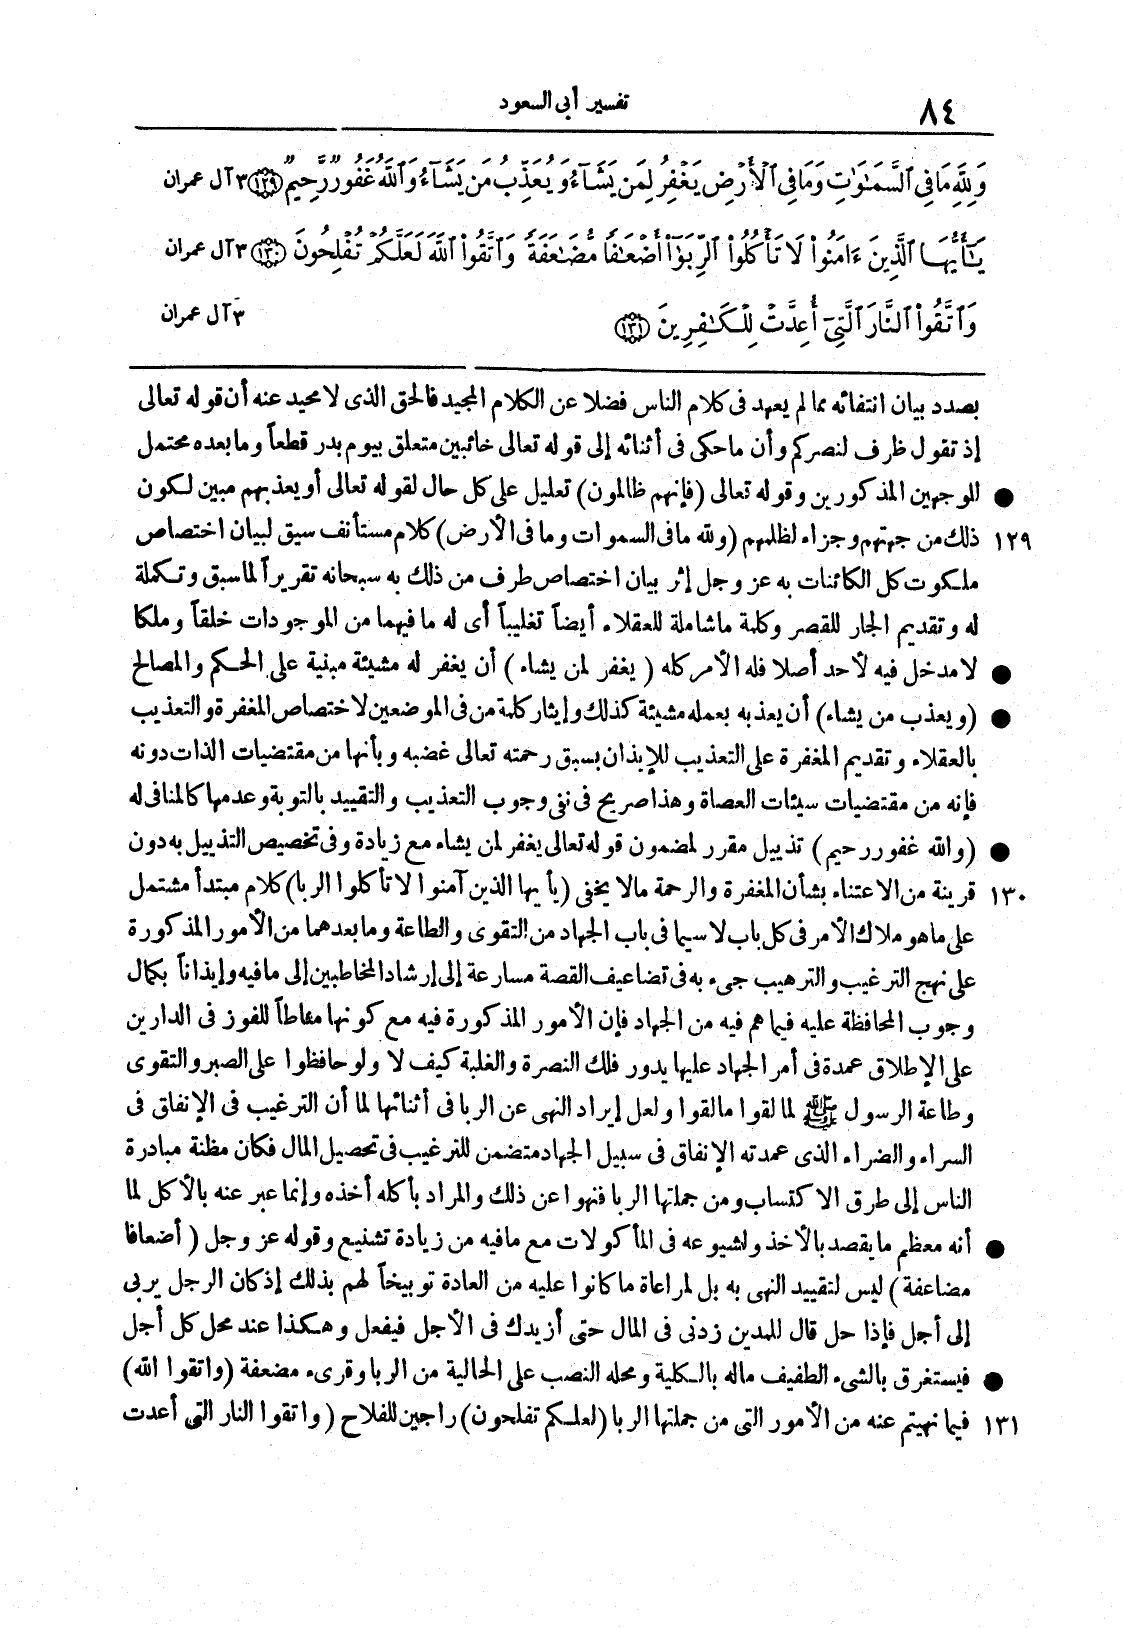 ٨٤
تفسير أبى السعود
وَلِلَّهِ مَا فِى ٱلسَّمَـٰوَٰتِ وَمَا فِى ٱلْأَرْضِ يَغْفِرُ لِمَن يَشَآءُ وَيُعَذِّبُ مَن يَشَآءُ وَٱللَّهُ غَفُورٌ رَّحِيمٌ ﴿١٢٩﴾ ٣ آل عمران
يَـٰٓأَيُّهَا ٱلَّذِينَ ءَامَنُوا۟ لَا تَأْكُلُوا۟ ٱلرِّبَوٰٓا۟ أَضْعَـٰفًا مُّضَـٰعَفَةً وَٱتَّقُوا۟ ٱللَّهَ لَعَلَّكُمْ تُفْلِحُونَ ﴿١٣٠﴾ ٣ آل عمران
وَٱتَّقُوا۟ ٱلنَّارَ ٱلَّتِىٓ أُعِدَّتْ لِلْكَـٰفِرِينَ ﴿١٣١﴾ ٣ آل عمران
بصدد بيان انتفائه مما لم يعهد فى كلام الناس فضلا عن الكلام المجيد فالحق الذى لا محيد عنه أن قوله تعالى
إذ تقول ظرف لنصركم وأن ما حكى فى أثنائه إلى قوله تعالى خائبين متعلق بيوم بدر قطعاً وما بعده محتمل
● للوجهين المذكورين وقوله تعالى (فإنهم ظالمون) تعليل على كل حال لقوله تعالى أو يعذبهم مبين لكون
١٢٩ ذلك من جهتهم وجزاء لظلمهم (ولله ما فى السموات وما فى الأرض) كلام مستأنف سيق لبيان اختصاص
ملكوت كل الكائنات به عز وجل إثر بيان اختصاص طرف من ذلك به سبحانه تقريراً لما سبق وتكملة
له وتقديم الجار للقصر وكلمة ما شاملة للعقلاء أيضاً تغليباً أى له ما فيهما من الموجودات خلقاً وملكا
● لا مدخل فيه لأحد أصلا فله الأمر كله (يغفر لمن يشاء) أن يغفر له مشيئة مبنية على الحكم والمصالح
● (ويعذب من يشاء) أن يعذبه بعمله مشيئة كذلك وإيثار كلمة من فى الموضعين لاختصاص المغفرة والتعذيب
بالعقلاء وتقديم المغفرة على التعذيب للإيذان بسبق رحمته تعالى غضبه وبأنها من مقتضيات الذات دونه
فإنه من مقتضيات سيئات العصاة وهذا صريح فى نفى وجوب التعذيب والتقييد بالتوبة وعدمها كالمنافى له
● (والله غفور رحيم) تذييل مقرر لمضمون قوله تعالى يغفر لمن يشاء مع زيادة وفى تخصيص التذييل به دون
١٣٠ قرينة من الاعتناء بشأن المغفرة والرحمة مالا يخفى (يأيها الذين آمنوا لا تأكلوا الربا) كلام مبتدأ مشتمل
على ما هو ملاك الأمر فى كل باب لا سيما فى باب الجهاد من التقوى والطاعة وما بعدهما من الأمور المذكورة
على نهج الترغيب والترهيب جىء به فى تضاعيف القصة مسارعة إلى إرشاد المخاطبين إلى ما فيه وإيذاناً بكمال
وجوب المحافظة عليه فيما هم فيه من الجهاد فإن الأمور المذكورة فيه مع كونها مناطاً للفوز فى الدارين
على الإطلاق عمدة فى أمر الجهاد عليها يدور فلك النصرة والغلبة كيف لا ولو حافظوا على الصبر والتقوى
وطاعة الرسول ﷺ لما لقوا ما لقوا ولعل إيراد النهى عن الربا فى أثنائها لما أن الترغيب فى الإنفاق فى
السراء والضراء الذى عمدته الإنفاق فى سبيل الجهاد متضمن للترغيب فى تحصيل المال فكان مظنة مبادرة
الناس إلى طرق الاكتساب ومن جملتها الربا فنهوا عن ذلك والمراد بأكله أخذه وإنما عبر عنه بالأكل لما
● أنه معظم ما يقصد بالأخذ ولشيوعه فى المأكولات مع ما فيه من زيادة تشنيع وقوله عز وجل (أضعافا
مضاعفة) ليس لتقييد النهى به بل لمراعاة ما كانوا عليه من العادة توبيخاً لهم بذلك إذ كان الرجل يربى
إلى أجل فإذا حل قال للمدين زدنى فى المال حتى أزيدك فى الأجل فيفعل وهكذا عند محل كل أجل
● فيستغرق بالشىء الطفيف ماله بالكلية ومحله النصب على الحالية من الربا وقرىء مضعفة (واتقوا الله)
١٣١ فيما نهيتم عنه من الأمور التى من جملتها الربا (لعلكم تفلحون) راجين للفلاح (واتقوا النار التى أعدت